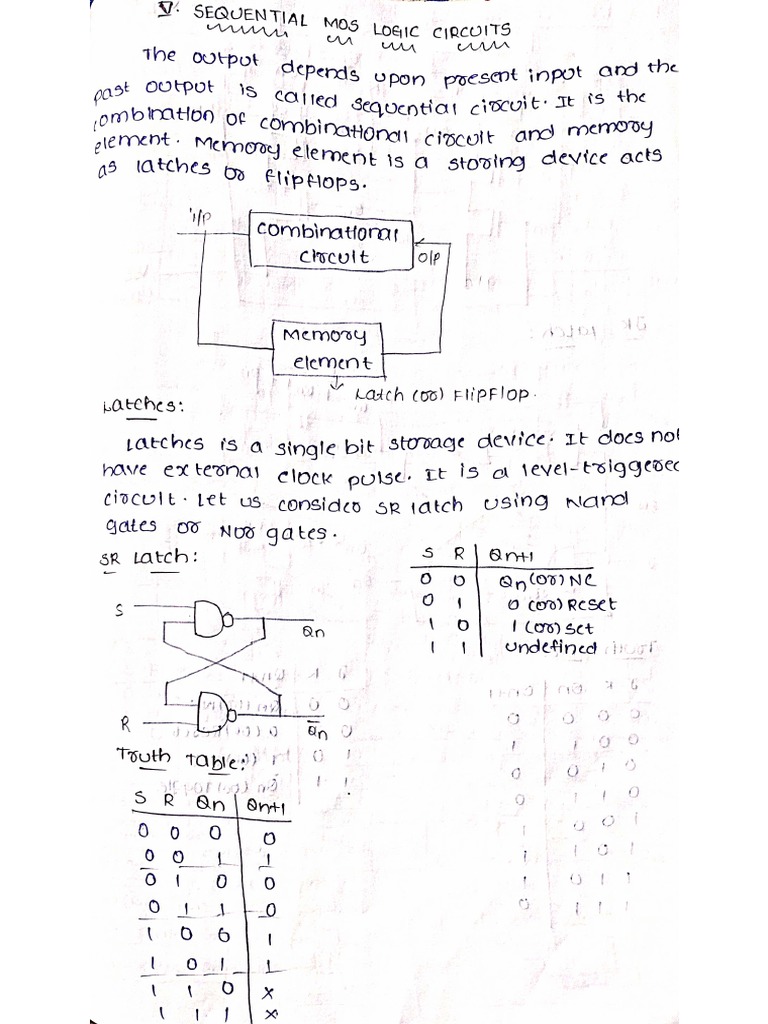 V. SEQUENTIAL MOS LOGIC CIRCUITS
The output depends upon present input and the
past output is called sequential circuit. It is the
combination of combinational circuit and memory
element. Memory element is a storing device acts
as latches or flipflops.
I/P
combinational
circuit
O/P
Memory
element
Latch (or) FlipFlop.
Latches:
Latches is a single bit storage device. It does not
have external clock pulse. It is a level-triggered
circuit. Let us consider SR latch using Nand
gates or Nor gates.
SR Latch:
S R Qn+1
0 0 Qn (or) NC
0 1 0 (or) Reset
1 0 1 (or) Set
1 1 undefined
S
Qn
R
Q̅n
Truth Table:
S R Qn Qn+1
0 0 0 0
0 0 1 1
0 1 0 0
0 1 1 0
1 0 0 1
1 0 1 1
1 1 0 x
1 1 1 x